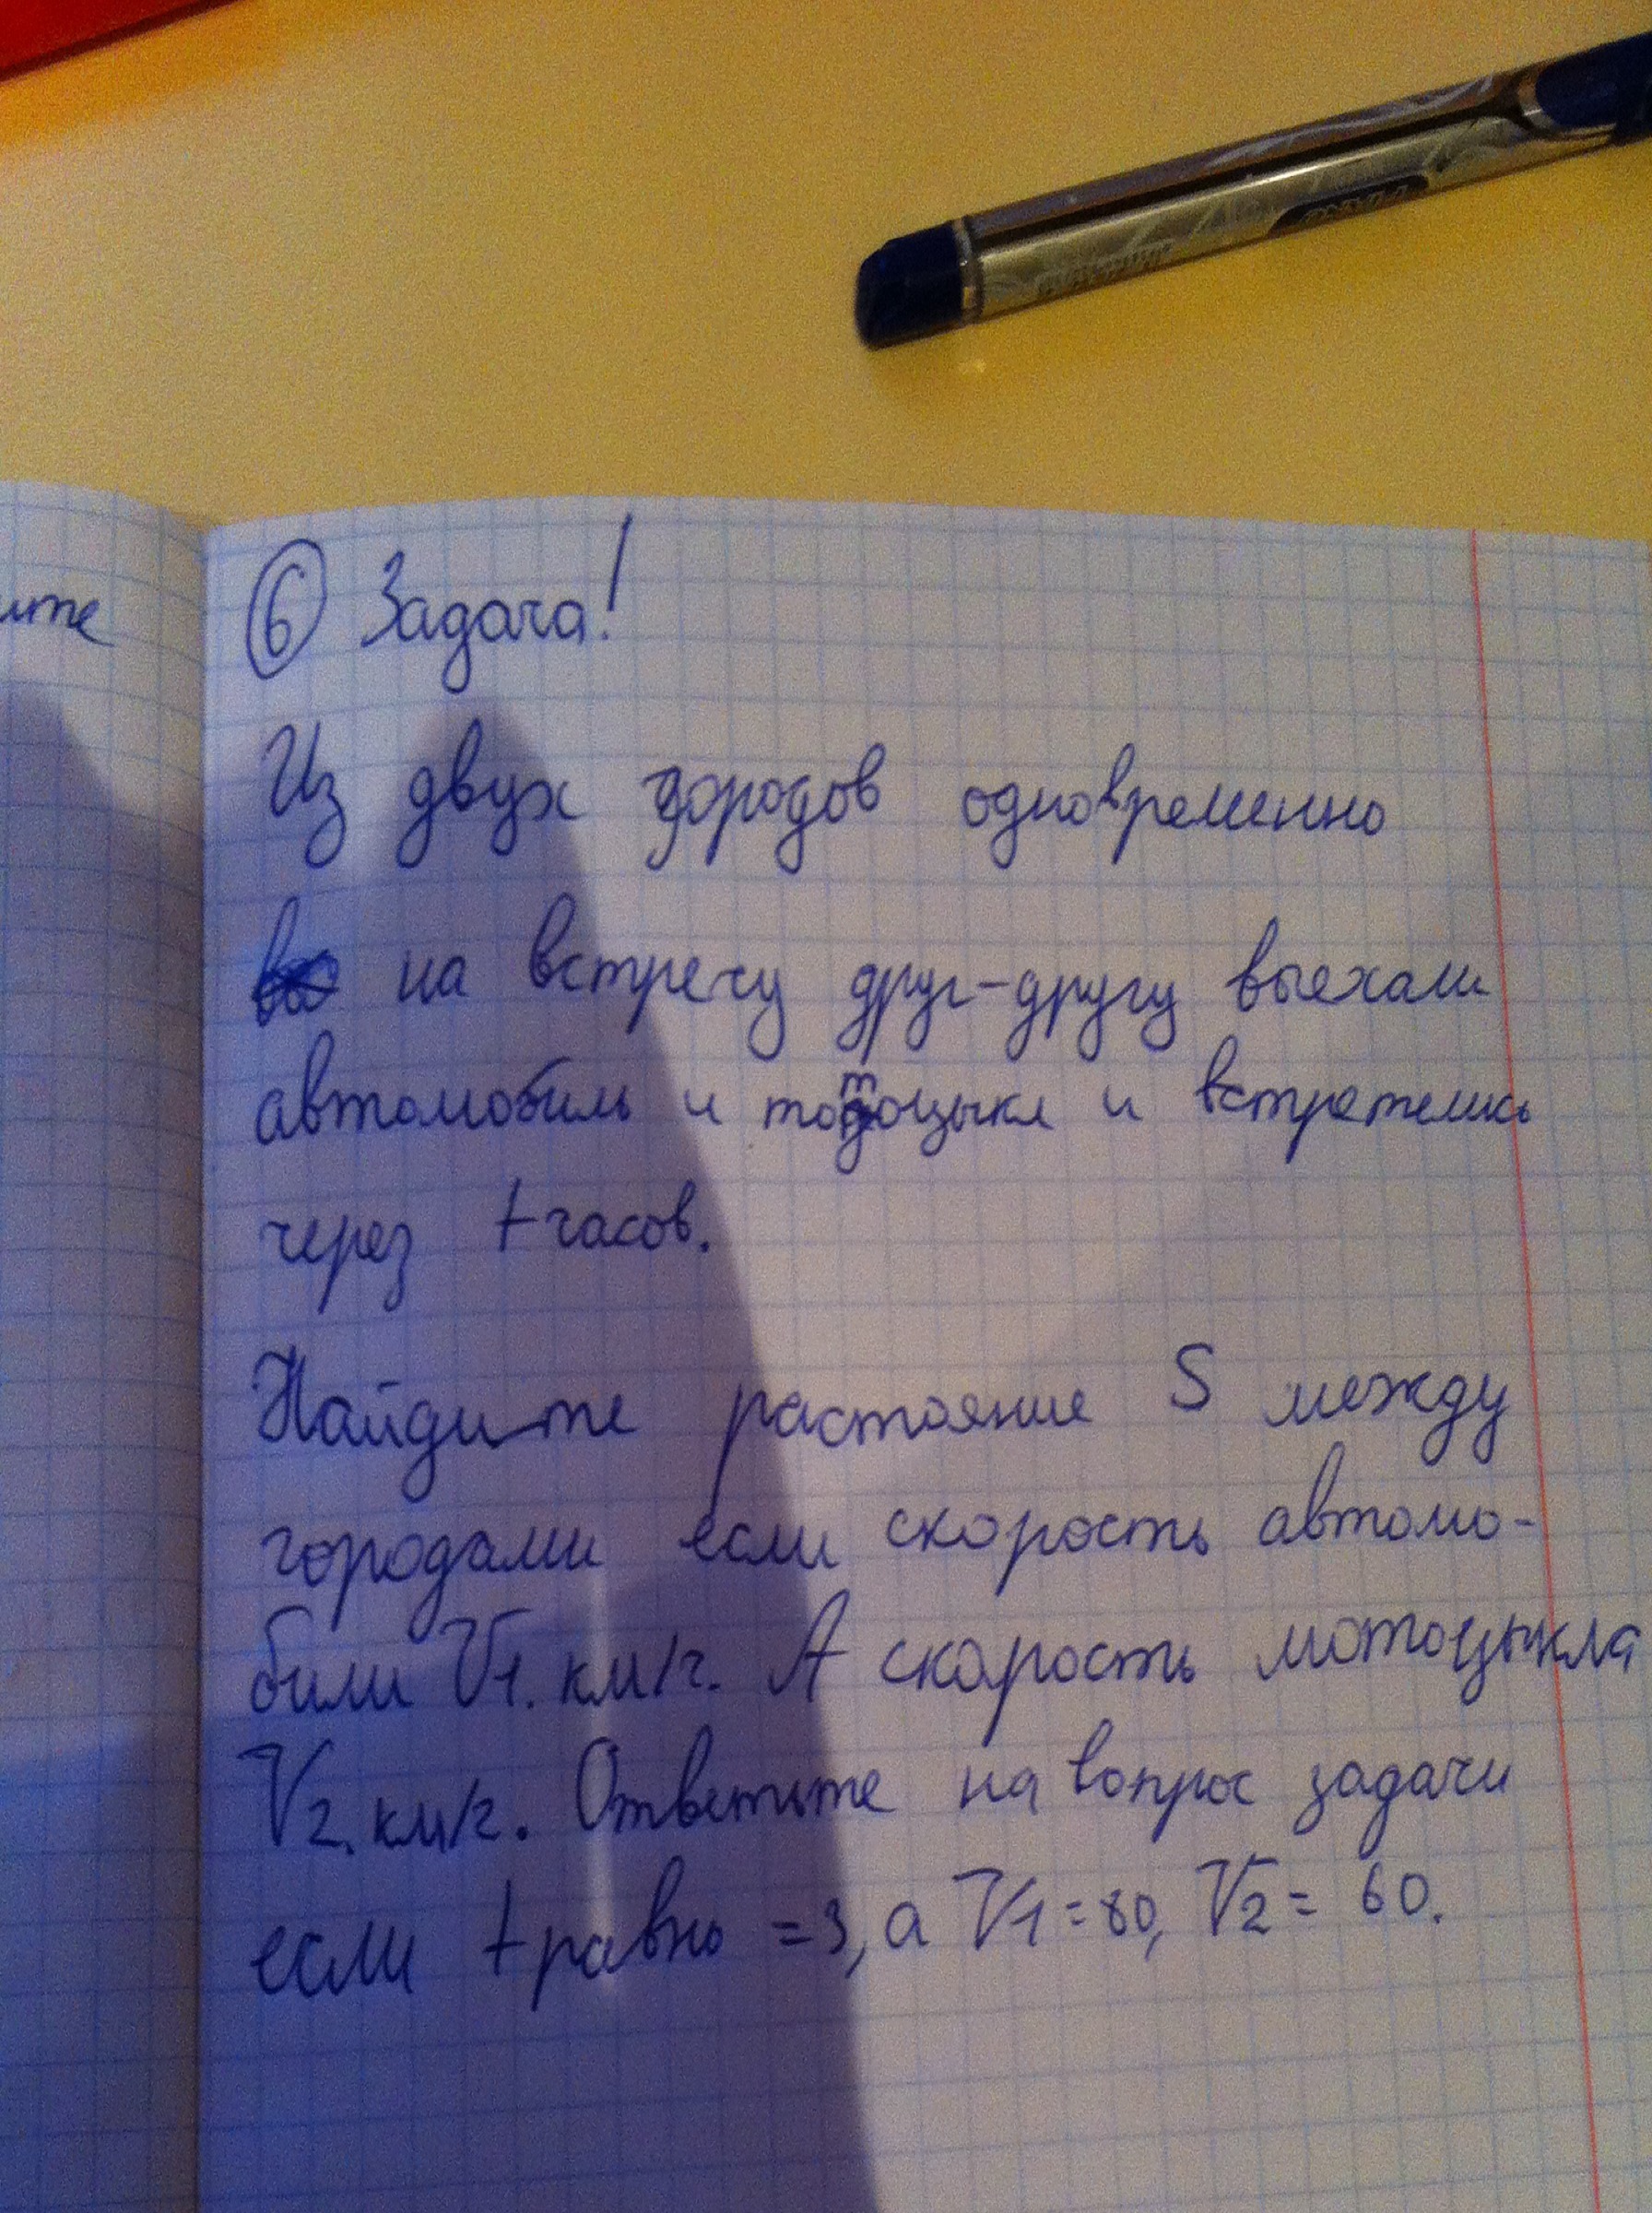 ите
⑥ Задача!
Из двух городов одновременно
на встречу друг-другу выехали
автомобиль и мотоцыкл и встретелись
через t часов.
Найдите растояние S между
городами если скорость автомо-
били V1. км/ч. А скорость мотоцыкла
V2. км/ч. Ответьте на вопрос задачи
если t равно =3, а V1=80, V2= 60.